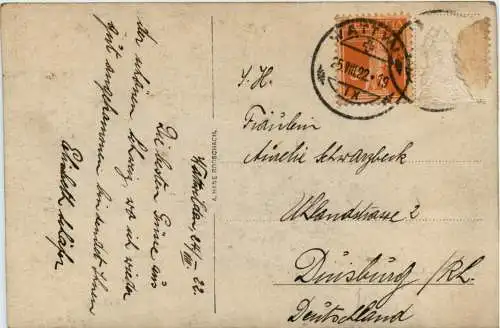 Wattwil, 24/VIII 22.
Die besten Grüsse aus
der schönen Schweiz, wo ich wieder
gut angekommen bin sendet Ihnen
Elisabeth
A. HANE RORSCHACH.
WATTWIL
25.VIII.22.19
S. H.
Fräulein
Aurelie Schwarzbeck
Uhlandstrasse 2
Duisburg / Rh.
Deutschland